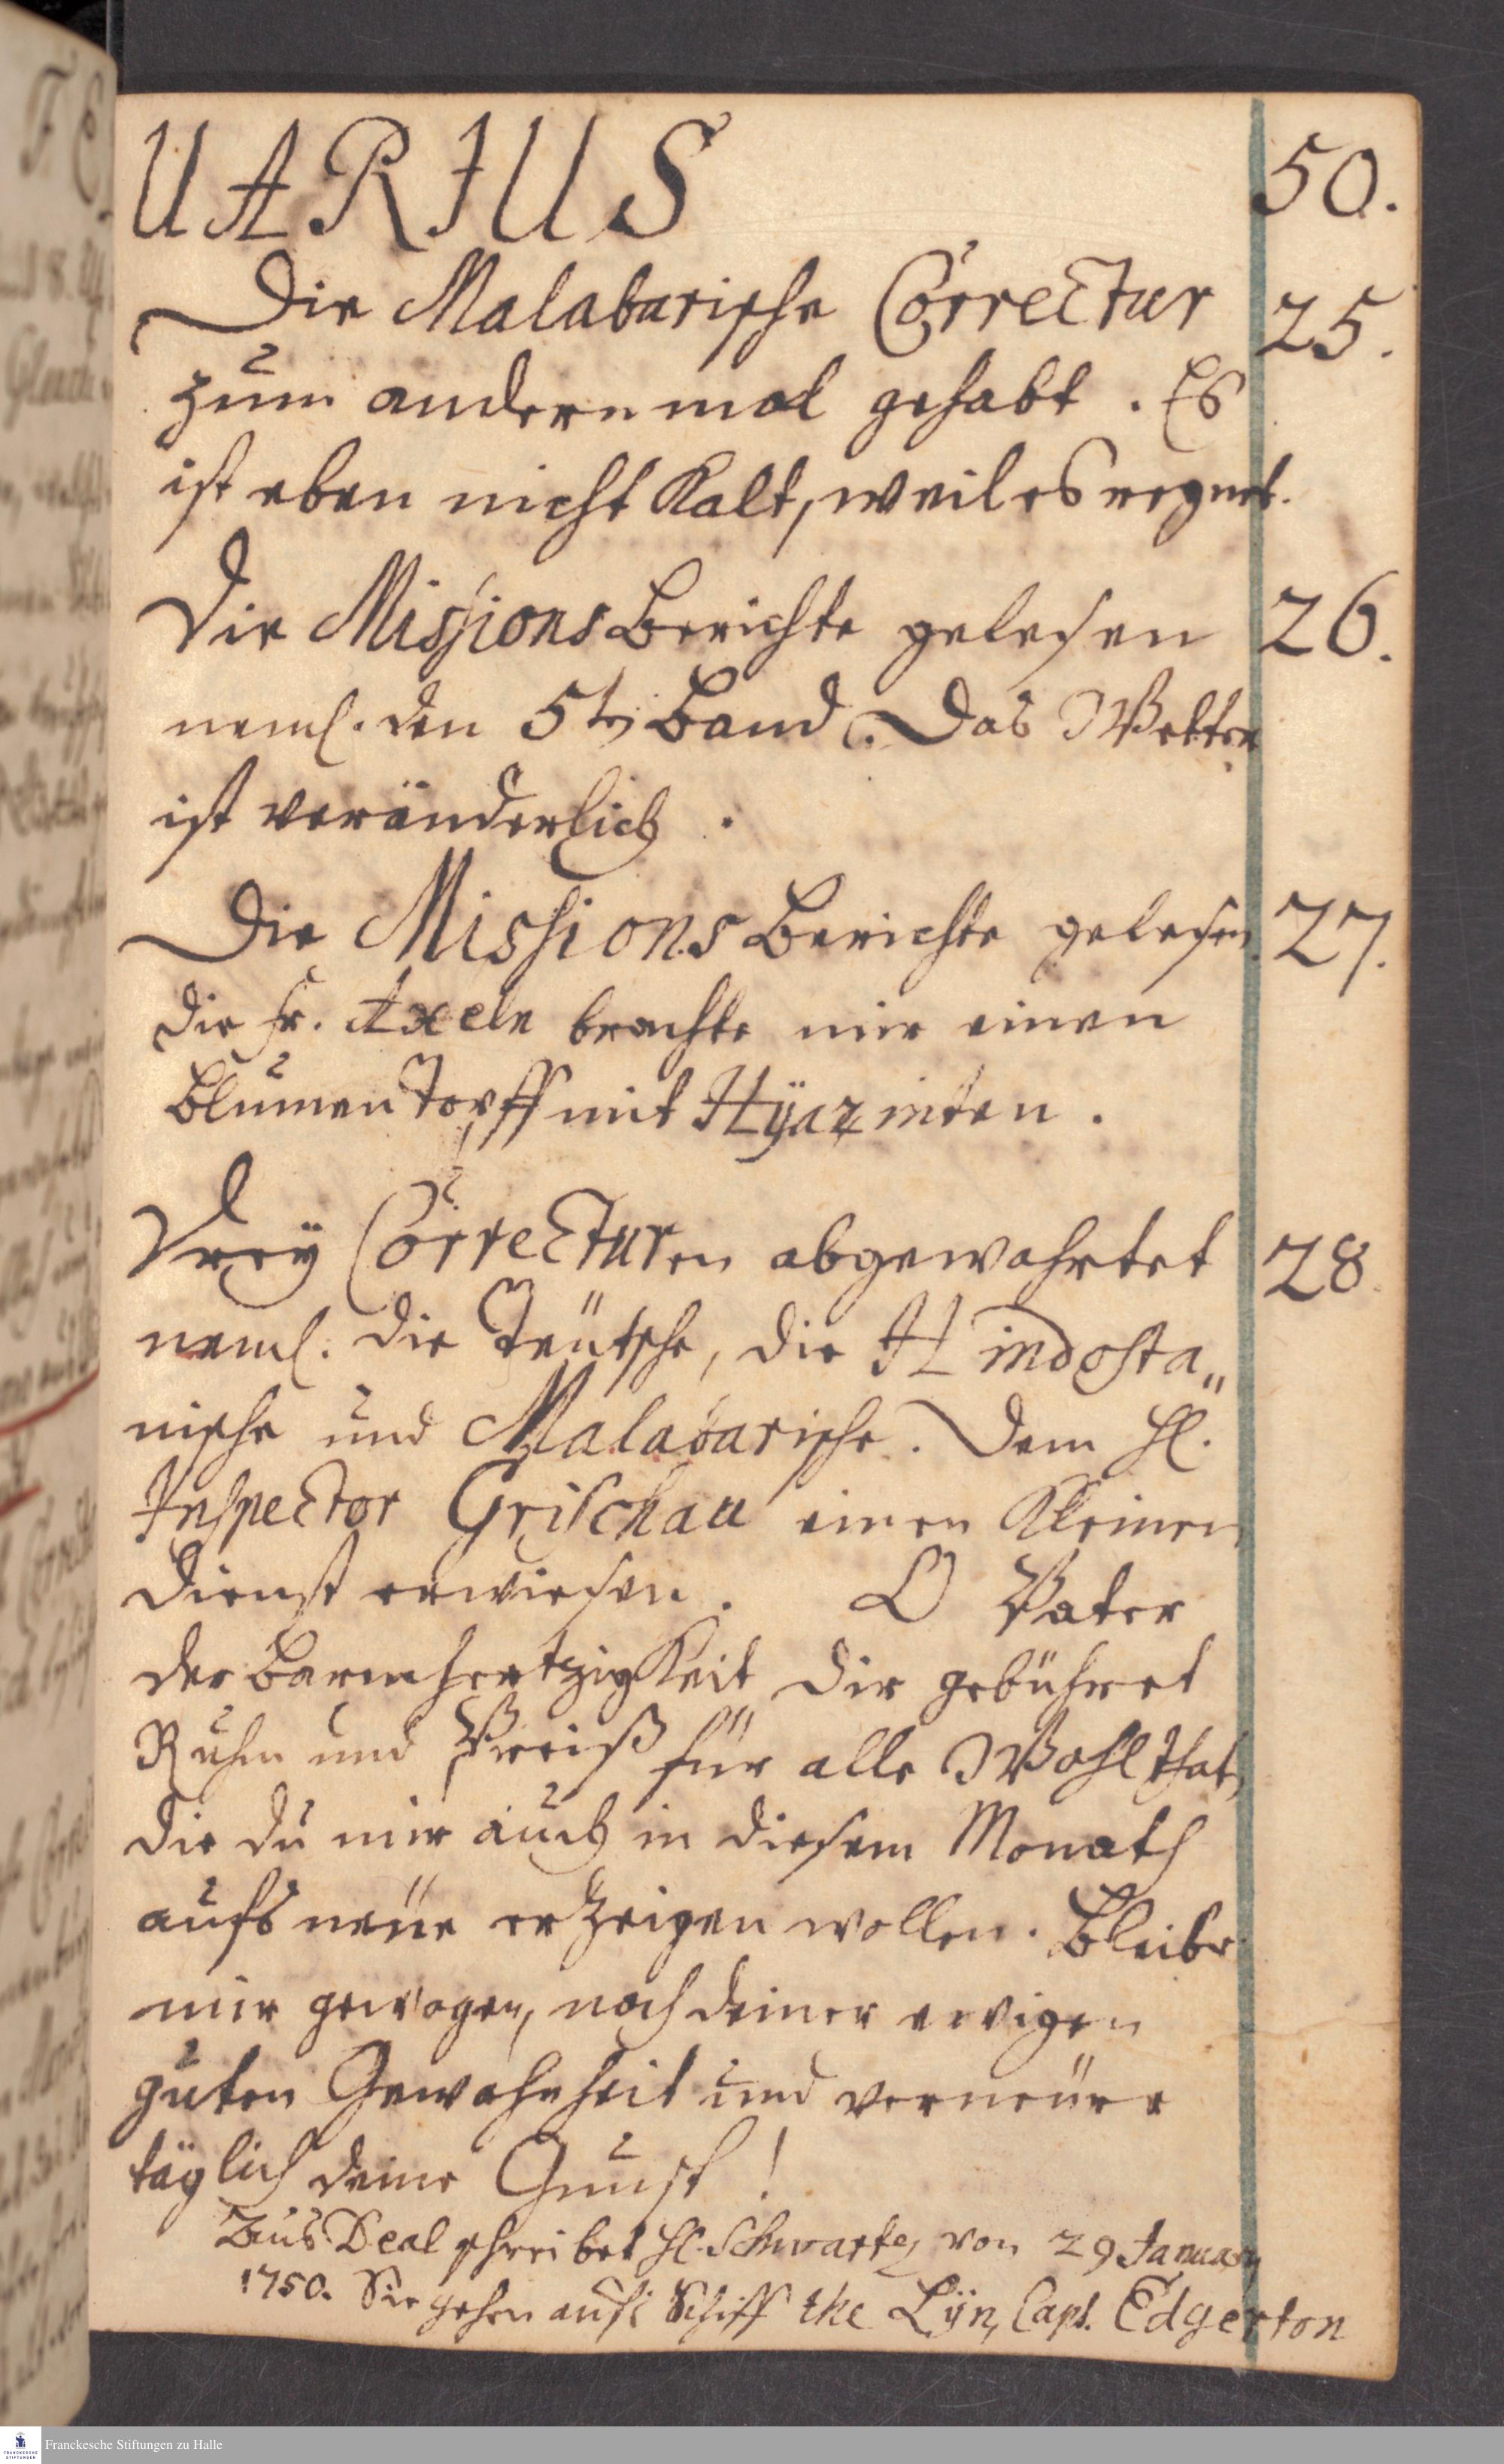 UARIUS 50.
Die Malabarische Correctur 25.
zum andernmal gehabt. Es
ist eben nicht kalt, weil es regnet.
Die Missions Berichte gelesen 26.
neml. den 5t. Band. Das Wetter
ist veränderlich.
Die Missions Berichte gelesen. 27.
die Fr. Axeln brachte mir einen
Blumen Topff mit Hÿazinten.
Dreÿ Correcturen abgewahrtet 28.
neml. die Teütsche, die Hindosta„
nische und Malabarische. Dem H.
Inspector Grischau einen kleinen
dienst erwiesen. O Vater
der Barmhertzigkeit dir gebühret
Ruhm und Preiß für alle Wohlthat,
die du mir auch in diesem Monath
aufs neüe erzeigen wollen. Bleibe
mir gewogen, nach deiner ewigen
guten Gewohnheit und verneüre
täglich deine Gunst!
Aus Deal schreibet H. Schwartz von 29 January
1750. Sie gehen aufs Schiff the Lÿn, Capt. Edgerton
Franckesche Stiftungen zu Halle